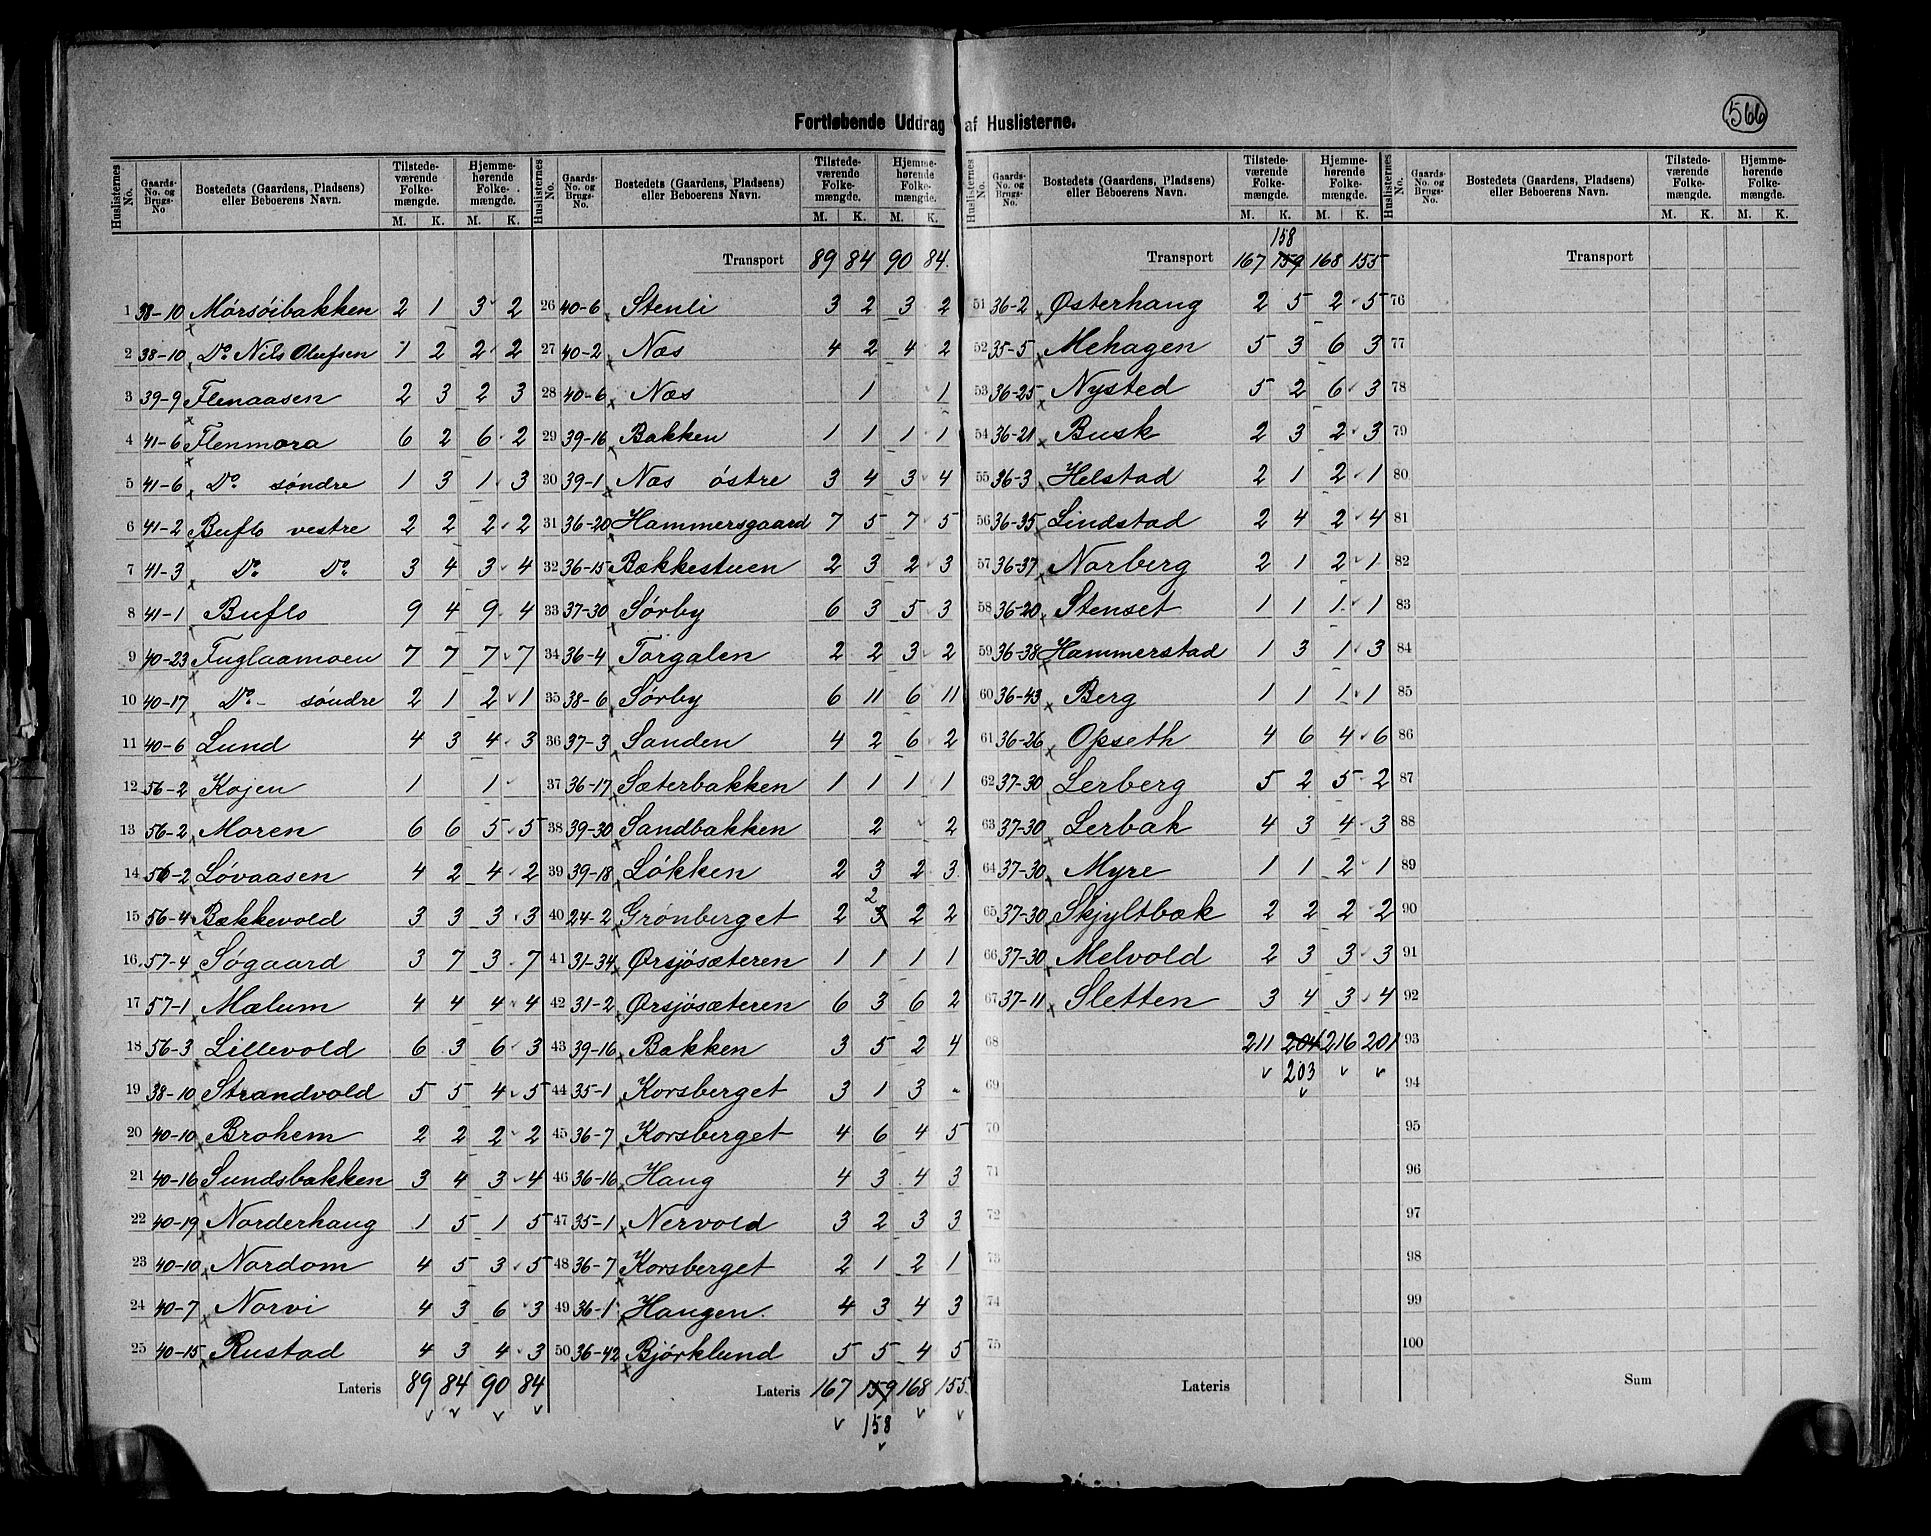 566
Fortløbende Uddrag af Huslisterne.
Huslisternes No. | Gaards-No. og Brugs-No | Bostedets (Gaardens, Pladsens) eller Beboerens Navn. | Tilstedeværende Folkemængde. M. K. | Hjemmehørende Folkemængde. M. K.
1 38-10 Mørsöibakken 2 1 3 2
2 38-10 Do Nils Olufsen 1 2 2 2
3 39-9 Flenaasen 2 3 2 3
4 41-6 Flenmora 6 2 6 2
5 41-6 Do søndre 1 3 1 3
6 41-2 Buflo vestre 2 2 2 2
7 41-3 Do Do 3 4 3 4
8 41-1 Buflo 9 4 9 4
9 40-23 Fuglaamoen 7 7 7 7
10 40-17 Do søndre 2 1 2 1
11 40-6 Lund 4 3 4 3
12 56-2 Kojen 1 1
13 56-2 Moren 6 6 5 5
14 56-2 Løvaasen 4 2 4 2
15 56-4 Bækkevold 3 3 3 3
16 57-4 Søgaard 3 7 3 7
17 57-1 Mælum 4 4 4 4
18 56-3 Lillevold 6 3 6 3
19 38-10 Strandvold 5 5 4 5
20 40-10 Brohem 2 2 2 2
21 40-16 Sundsbakken 3 4 3 4
22 40-19 Norderhaug 1 5 1 5
23 40-10 Nordom 4 5 3 5
24 40-7 Norvi 4 3 6 3
25 40-15 Rustad 4 3 4 3
Lateris 89 84 90 84
Huslisternes No. | Gaards-No. og Brugs-No. | Bostedets (Gaardens, Pladsens) eller Beboerens Navn. | Tilstedeværende Folkemængde. M. K. | Hjemmehørende Folkemængde. M. K.
Transport 89 84 90 84.
26 40-6 Stenli 3 2 3 2
27 40-2 Næs 4 2 4 2
28 40-6 Næs 1 1
29 39-16 Bakken 1 1 1 1
30 39-1 Næs østre 3 4 3 4
31 36-20 Hammersgaard 7 5 7 5
32 36-15 Bækkestuen 2 3 2 3
33 37-30 Sørby 6 3 5 3
34 36-4 Torgalen 2 2 3 2
35 38-6 Sørby 6 11 6 11
36 37-3 Sanden 4 2 6 2
37 36-17 Sæterbakken 1 1 1 1
38 39-30 Sandbakken 2 2
39 39-18 Løkken 2 3 2 3
40 24-2 Grønberget 2 3 2 2 2
41 31-34 Ørsjøsæteren 1 1 1 1
42 31-2 Ørsjøsæteren 6 3 6 2
43 39-16 Bakken 3 5 2 4
44 35-1 Korsberget 3 1 3 -
45 36-7 Korsberget 4 6 4 5
46 36-16 Haug 4 3 4 3
47 35-1 Nervold 3 2 3 3
48 36-7 Korsberget 2 1 2 1
49 36-1 Haugen. 4 3 4 3
50 36-42 Bjørklund 5 5 4 5
Lateris 167 159 168 155
158
Huslisternes No. | Gaards-No. og Brugs-No. | Bostedets (Gaardens, Pladsens) eller Beboerens Navn. | Tilstedeværende Folkemængde. M. K. | Hjemmehørende Folkemængde. M. K.
158
Transport 167 159 168 155
51 36-2 Østerhaug 2 5 2 5
52 35-5 Mehagen 5 3 6 3
53 36-25 Nysted 5 2 6 3
54 36-21 Busk 2 3 2 3
55 36-3 Helstad 2 1 2 1
56 36-35 Lindstad 2 4 2 4
57 36-37 Norberg 2 1 2 1
58 36-20 Stenset 1 1 1 1
59 36-38 Hammerstad 1 3 1 3
60 36-43 Berg 1 1 1 1
61 36-26 Opseth 4 6 4 6
62 37-30 Lerberg 5 2 5 2
63 37-30 Lerbak 4 3 4 3
64 37-30 Myre 1 1 2 1
65 37-30 Skjyltbæk 2 2 2 2
66 37-30 Melvold 2 3 3 3
67 37-11 Sletten 3 4 3 4
68 211 204 216 201
69 203
70
71
72
73
74
75
Lateris
Huslisternes No. | Gaards-No. og Brugs-No. | Bostedets (Gaardens, Pladsens) eller Beboerens Navn. | Tilstedeværende Folkemængde. M. K. | Hjemmehørende Folkemængde. M. K.
Transport
76
77
78
79
80
81
82
83
84
85
86
87
88
89
90
91
92
93
94
95
96
97
98
99
100
Sum